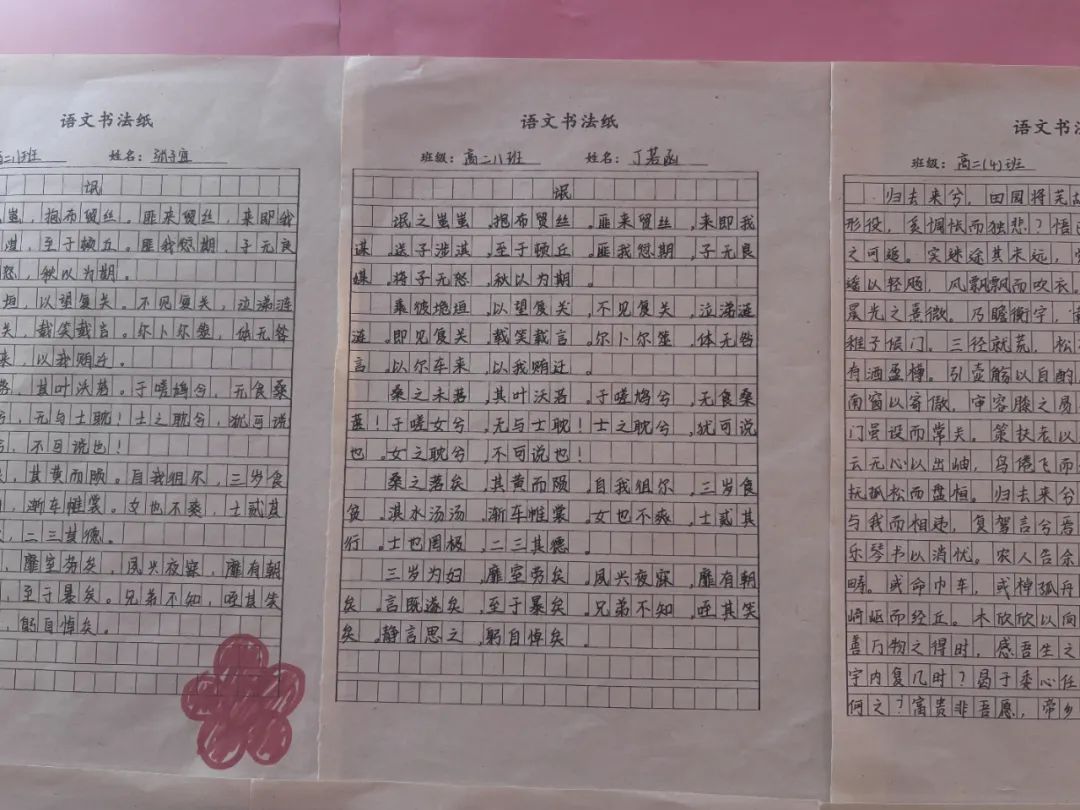 语文书法纸
二八班 姓名：
氓
蚩，抱布贸丝。匪来贸丝，来即我
淇，至于顿丘。匪我愆期，子无良
怒，秋以为期。
垣，以望复关。不见复关，泣涕涟
关，载笑载言。尔卜尔筮，体无咎
来，以我贿迁。
落，其叶沃若。于嗟鸠兮，无食桑
兮，无与士耽！士之耽兮，犹可说
兮，不可说也！
矣，其黄而陨。自我徂尔，三岁食
，渐车帷裳。女也不爽，士贰其
，二三其德。
，靡室劳矣，夙兴夜寐，靡有朝
，至于暴矣。兄弟不知，咥其笑
，躬自悼矣。
语文书法纸
班级：高二八班 姓名：丁若函
氓
氓之蚩蚩，抱布贸丝。匪来贸丝，来即我
谋。送子涉淇，至于顿丘。匪我愆期，子无良
媒。将子无怒，秋以为期。
乘彼垝垣，以望复关。不见复关，泣涕涟
涟。既见复关，载笑载言。尔卜尔筮，体无咎
言。以尔车来，以我贿迁。
桑之未落，其叶沃若。于嗟鸠兮，无食桑
葚！于嗟女兮，无与士耽！士之耽兮，犹可说
也。女之耽兮，不可说也！
桑之落矣，其黄而陨。自我徂尔，三岁食
贫。淇水汤汤，渐车帷裳。女也不爽，士贰其
行。士也罔极，二三其德。
三岁为妇，靡室劳矣。夙兴夜寐，靡有朝
矣。言既遂矣，至于暴矣。兄弟不知，咥其笑
矣。静言思之，躬自悼矣。
语文书法
班级：高二(4)班
归去来兮，田园将芜
形役，奚惆怅而独悲？悟已
之可追。实迷途其未远，
遥以轻飏，风飘飘而吹衣。
晨光之熹微。乃瞻衡宇，
稚子候门。三径就荒，松
有酒盈樽。引壶觞以自酌
南窗以寄傲，审容膝之易
门虽设而常关。策扶老以
云无心以出岫，鸟倦飞而
抚孤松而盘桓。归去来兮
与我而相违，复驾言兮焉
乐琴书以消忧。农人告余
畴。或命巾车，或棹孤舟
崎岖而经丘。木欣欣以向
善万物之得时，感吾生之
宇内复几时？曷不委心任
何之？富贵非吾愿，帝乡